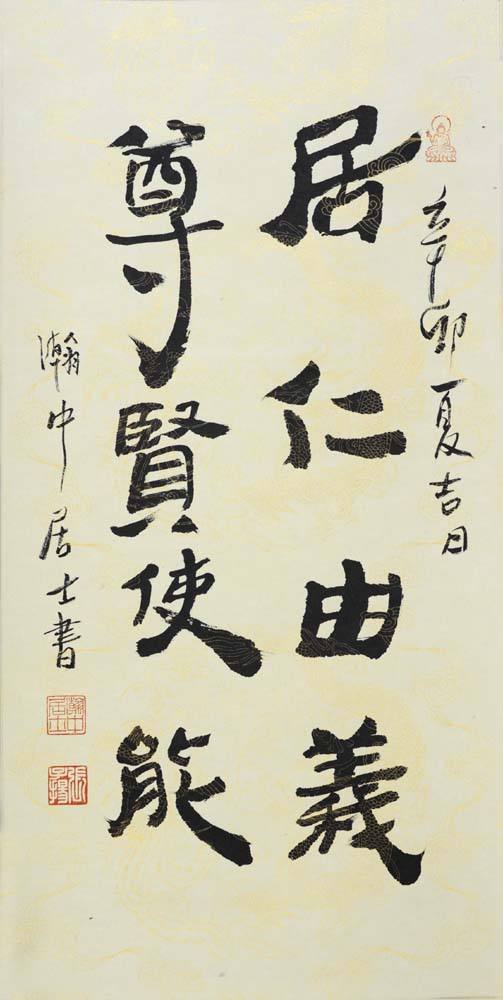 辛卯夏吉日
居仁由義
尊賢使能
瀚中居士書
瀚中居士